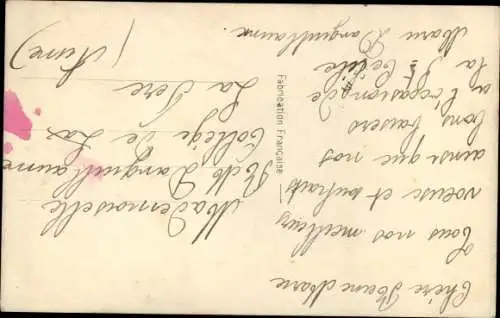 Chère Jeanne Marie
Tous nos meilleurs
voeux et souhaits
ainsi que nos
bons baisers
à l'occasion de
la Ste Cécile
Marie Danguillaume.
Fabrication Française
Mademoiselle
Danguillaume
Collège de
La Fère
(Aisne)